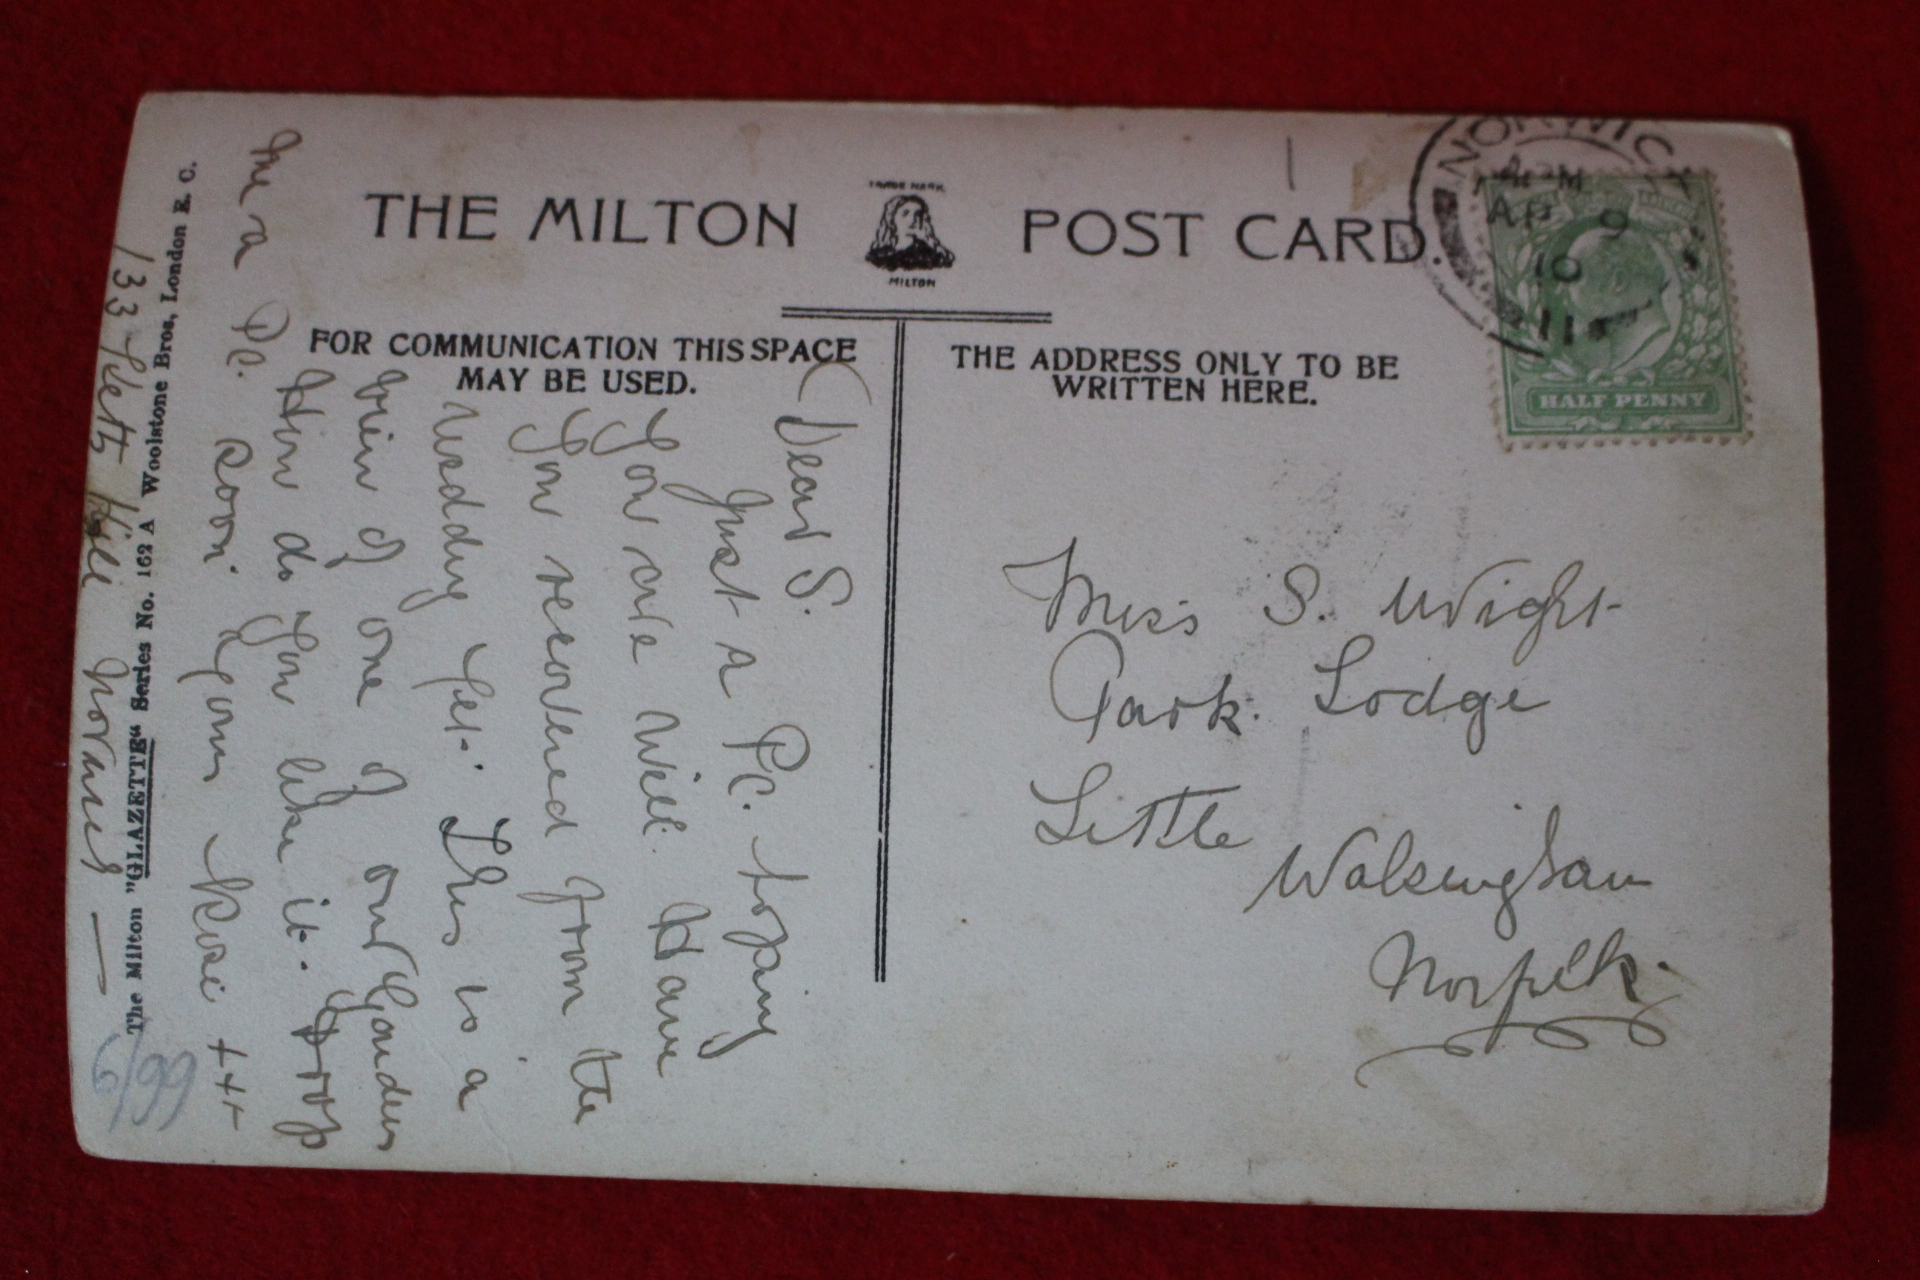 THE MILTON POST CARD.
TRADE MARK
MILTON
FOR COMMUNICATION THIS SPACE
MAY BE USED.
THE ADDRESS ONLY TO BE
WRITTEN HERE.
NORWICH
AP 9
10
HALF PENNY
Dear S.
Just a Pc. hoping
you are well. Have
you recovered from the
Wedding yet. This is a
view of one of our Gardens
How do you like it. Drop
me a Pc. soon. Yours Rosie +++
133 Ketts Hill Norwich
Miss S. Wright
Park Lodge
Little
Walsingham
Norfolk.
The Milton "GLAZETTE" Series No. 162 A Woolstone Bros, London E. C.